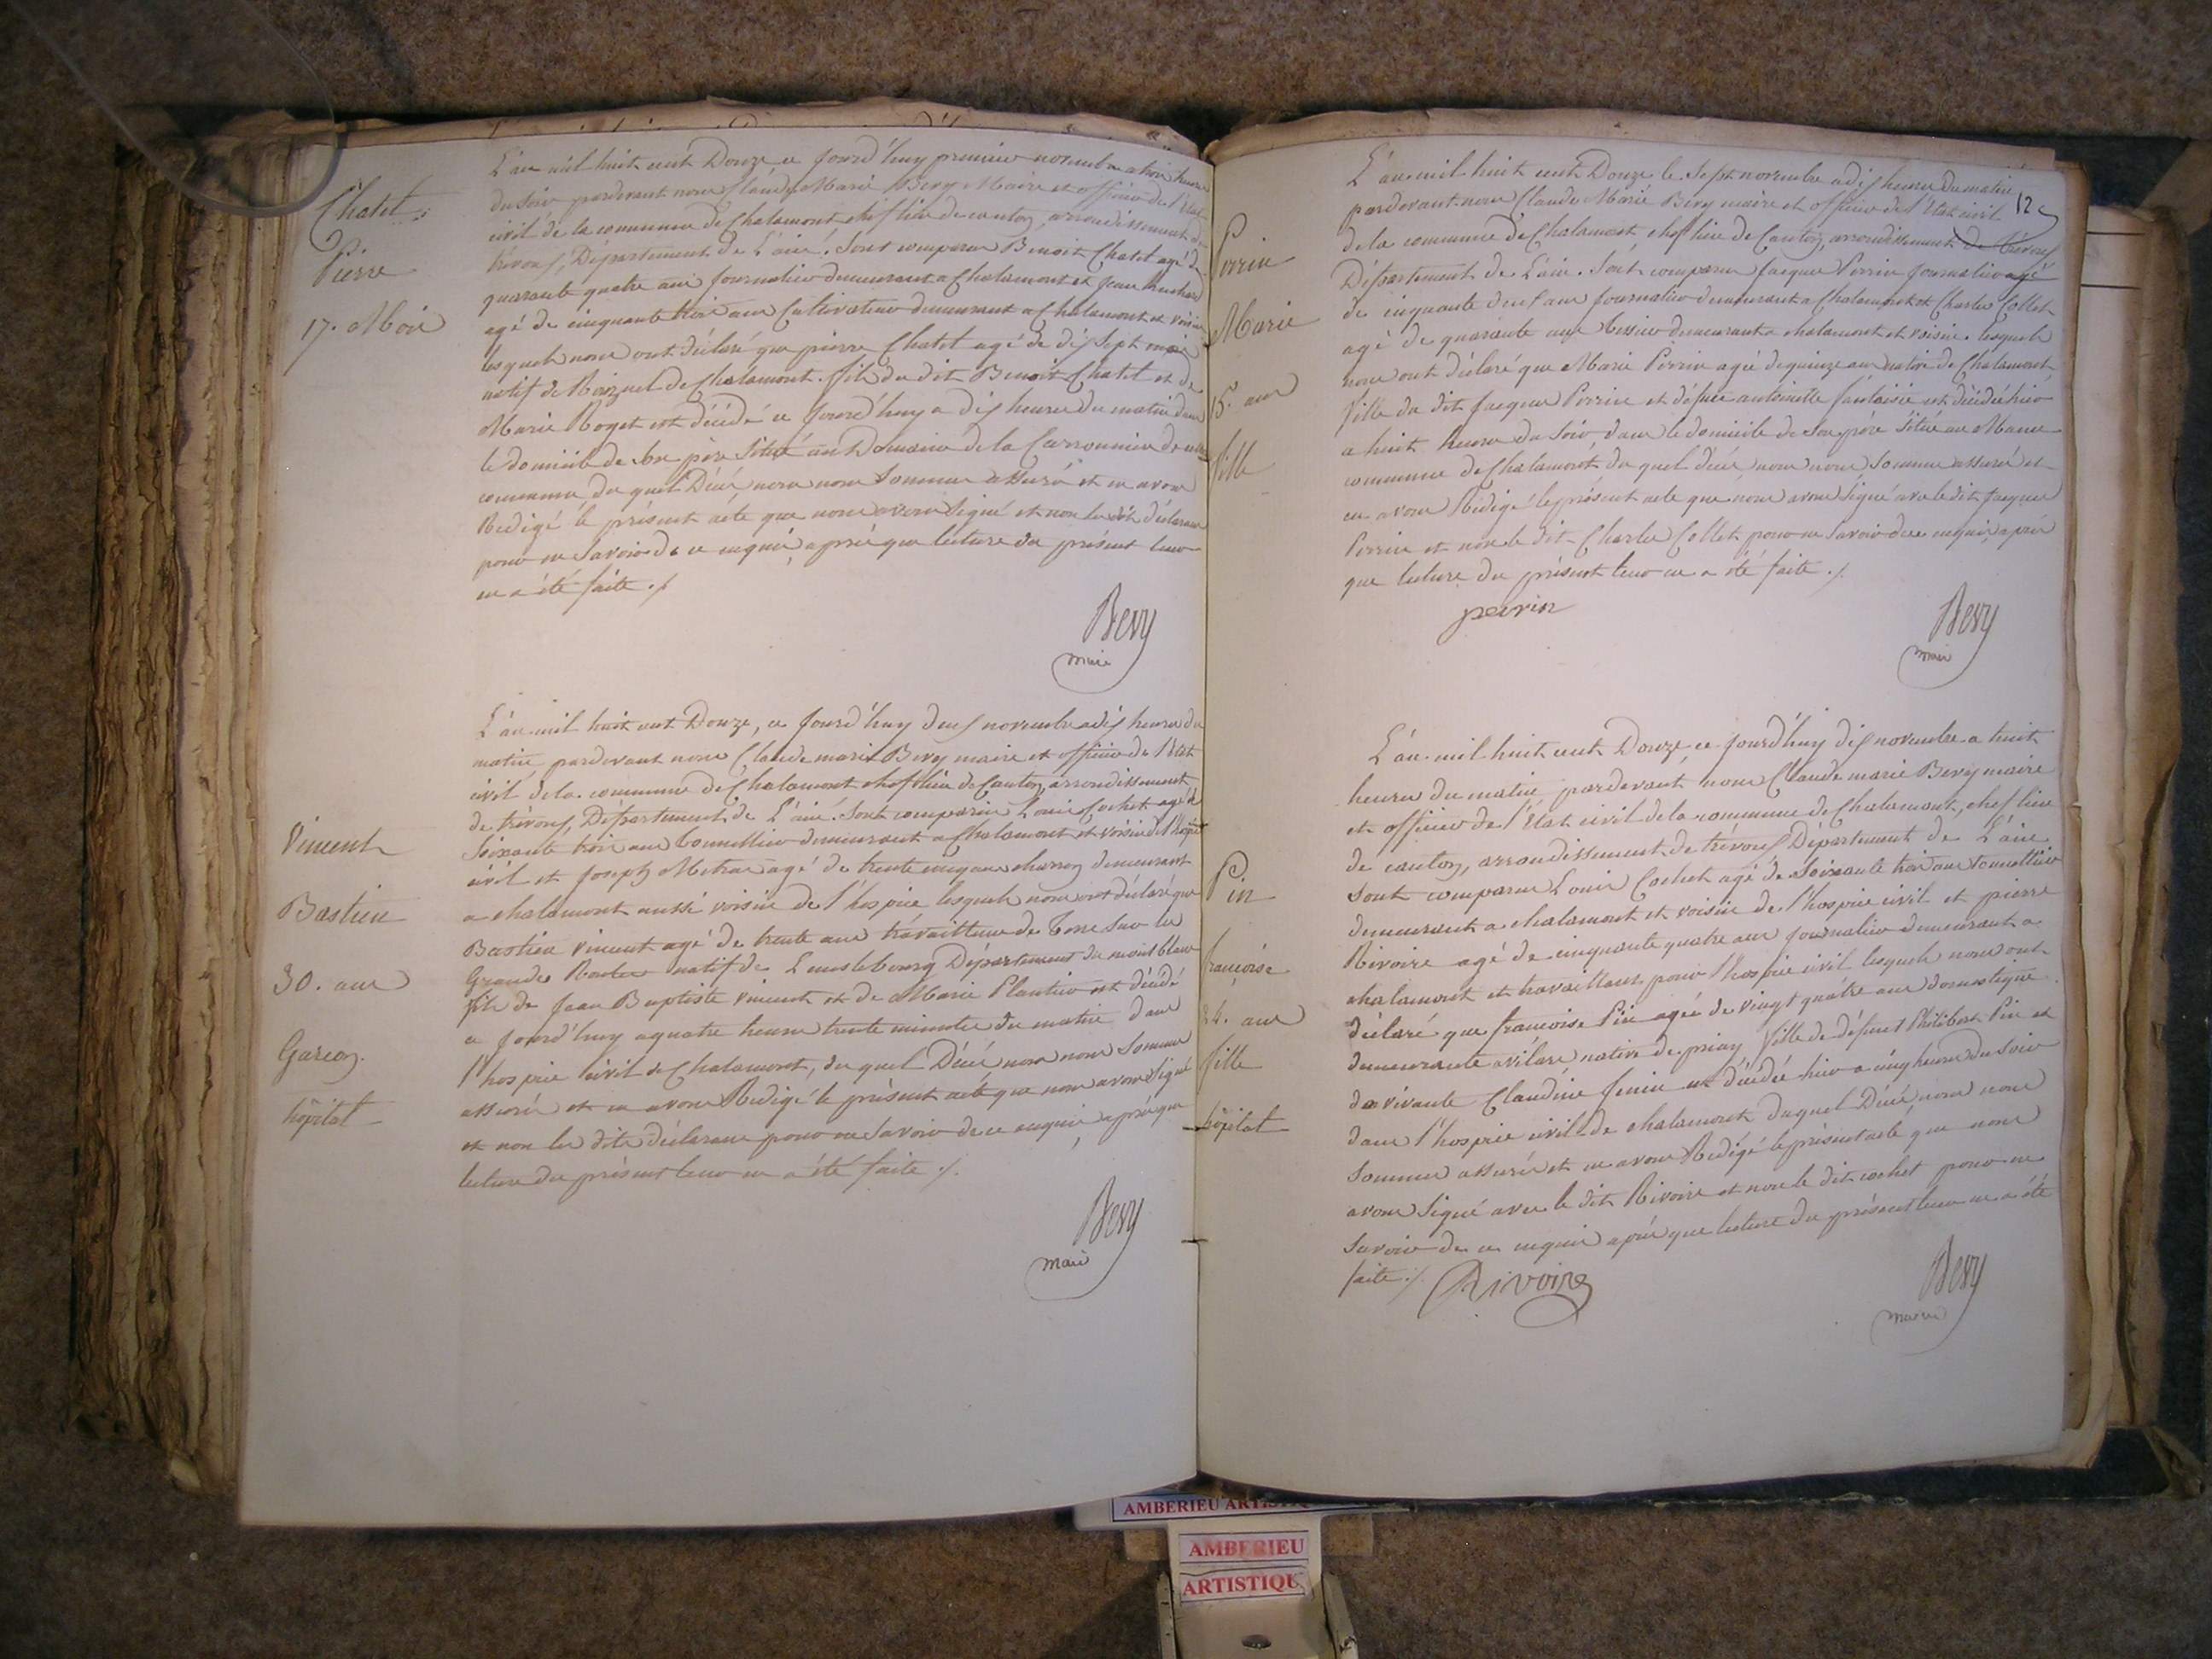 Chatel
Pierre
17. Mois
L'an mil huit cent Douze ce jourd'huy premier novembre a trois heures
du soir pardevant nous Claude Marie Bevy Maire et officier de l'Etat
civil de la commune de Chalamont chef lieu de canton, arrondissement de
trévoux, Département de L'ain. Sont comparus Benoit Chatel agé de
quarante quatre ans journalier demeurant a Chalamont et Jean
agé de cinquante trois ans Cultivateur demeurant a Chalamont et voisin
lesquels nous ont déclaré que pierre Chatel agé de dix sept mois
natif de de Chalamont. fils du dit Benoit Chatel et de
Marie Roget est décédé ce jourd'huy a dix heures du matin dans
le domicile de son père situé au Domaine de la de cette
commune, du quel Décés nous nous sommes assuré et en avons
Redigé le présent acte que nous avons signé et non les dits déclarans
pour ne savoir de ce enquis, après que lecture du présent leur
en a été faite ./.
Bevy
maire
Vincent
Bastien
30. ans
Garçon.
hôpital
L'an mil huit cent Douze, ce jourd'huy deux novembre a dix heures du
matin pardevant nous Claude marie Bevy maire et officier de l'Etat
civil de la commune de Chalamont chef lieu de Canton, arrondissement
de trévoux, Département de L'ain. Sont comparus Louis Cochet agé de
soixante trois ans Tonnellier demeurant a Chalamont et voisin de l'hospice
civil et Joseph Metras agé de trente cinq ans charron demeurant
a chalamont aussi voisin de l'hospice lesquels nous ont déclaré que
Bastien Vincent agé de trente ans travailleur de Terre sur les
Grandes Routes natif de Lanslebourg Département du mont blanc
fils de Jean Baptiste Vincent et de Marie Plantier est décédé
ce jourd'huy a quatre heures trente minutes du matin dans
l'hospice civil de Chalamont, du quel Décés nous nous sommes
assurés et en avons Redigé le présent acte que nous avons signé
et non les dits déclarans pour ne savoir de ce enquis, après que
lecture du présent leur en a été faite ./.
Bevy
maire
12
Perrin
Marie
15. ans
fille
L'an mil huit cent Douze le sept novembre a dix heures du matin
pardevant nous Claude Marie Bevy maire et officier de l'Etat civil
de la commune de Chalamont, chef lieu de Canton, arrondissement de trévoux
Département de L'ain. Sont comparus Jacques Perrin journalier agé
de cinquante deux ans journalier demeurant a Chalamont et Charles Collet
agé de quarante ans Tessier demeurant a chalamont et voisin. lesquels
nous ont déclaré que Marie Perrin agée de quinze ans native de Chalamont
fille du dit Jacques Perrin et défunte antoinette fantaisie est décédée hier
a huit heures du soir, dans le domicile de son père situé au
commune de Chalamont du quel décés nous nous sommes assurés et
en avons Rédigé le présent acte que nous avons signé avec le dit Jacques
Perrin et non le dit Charles Collet pour ne savoir de ce enquis, après
que lecture du présent leur en a été faite ./.
perrin
Bevy
maire
Pin
françoise
24. ans
fille
hôpital
L'an mil huit cent Douze, ce jourd'huy dix novembre a huit
heures du matin pardevant nous Claude marie Bevy maire
et officier de l'Etat civil de la commune de Chalamont, chef lieu
de canton, arrondissement de trévoux Département de L'ain
Sont comparus Louis Cochet agé de soixante trois ans tonnellier
demeurant a chalamont et voisin de l'hospice civil et pierre
Rivoire agé de cinquante quatre ans journalier demeurant a
chalamont et travaillant pour l'hospice civil lesquels nous ont
déclaré que françoise Pin agée de vingt quatre ans domestique
demeurante a native de priay fille de défunt Philibert Pin et
de vivante Claudine est décédée hier a cinq heures du soir
dans l'hospice civil de chalamont duquel Décés nous nous
sommes assurés et en avons Redigé le présent acte que nous
avons signé avec le dit Rivoire et non le dit cochet pour ne
savoir de ce enquis après que lecture du présent leur en a été
faite ./.
Rivoire
Bevy
maire
AMBERIEU ARTISTIQUE
AMBERIEU
ARTISTIQUE